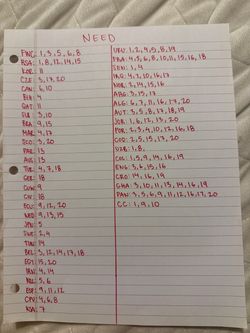 NEED
FWC: 1, 3, 5, 6, 8
RSA: 1, 8, 12, 14, 15
KOR: 11
CZE: 3, 17, 20
CAN: 6, 10
BIH: 4
QAT: 11
SUI: 3, 10
BRA: 9, 15
MAR: 9, 17
SCO: 3, 20
PAR: 13
AUS: 13
TUR: 4, 7, 18
GER: 18
CUW: 9
CIV: 18
ECU: 9, 12, 20
NED: 9, 13, 15
JPN: 5
SWE: 2, 4
TUN: 14
BEL: 3, 12, 14, 17, 18
EGY: 15, 20
IRN: 4, 14
NZL: 5, 6
ESP: 9, 11, 12
CPV: 4, 6, 8
KSA: 7
URU: 1, 2, 4, 5, 8, 19
FRA: 4, 5, 6, 8, 10, 11, 15, 16, 18
SEN: 1, 4
IRQ: 4, 7, 10, 16, 17
NOR: 2, 14, 15, 16
ARG: 3, 15, 17
ALG: 6, 7, 11, 16, 17, 20
AUT: 3, 5, 8, 17, 18, 19
JOR: 1, 6, 12, 13, 20
POR: 2, 3, 4, 10, 12, 16, 18
COD: 2, 5, 15, 17, 20
UZB: 1, 8
COL: 1, 5, 9, 14, 16, 19
ENG: 3, 6, 15, 16
CRO: 14, 16, 19
GHA: 3, 10, 11, 13, 14, 16, 19
PAN: 3, 5, 6, 9, 12, 16, 17, 19, 20
CC: 1, 9, 10